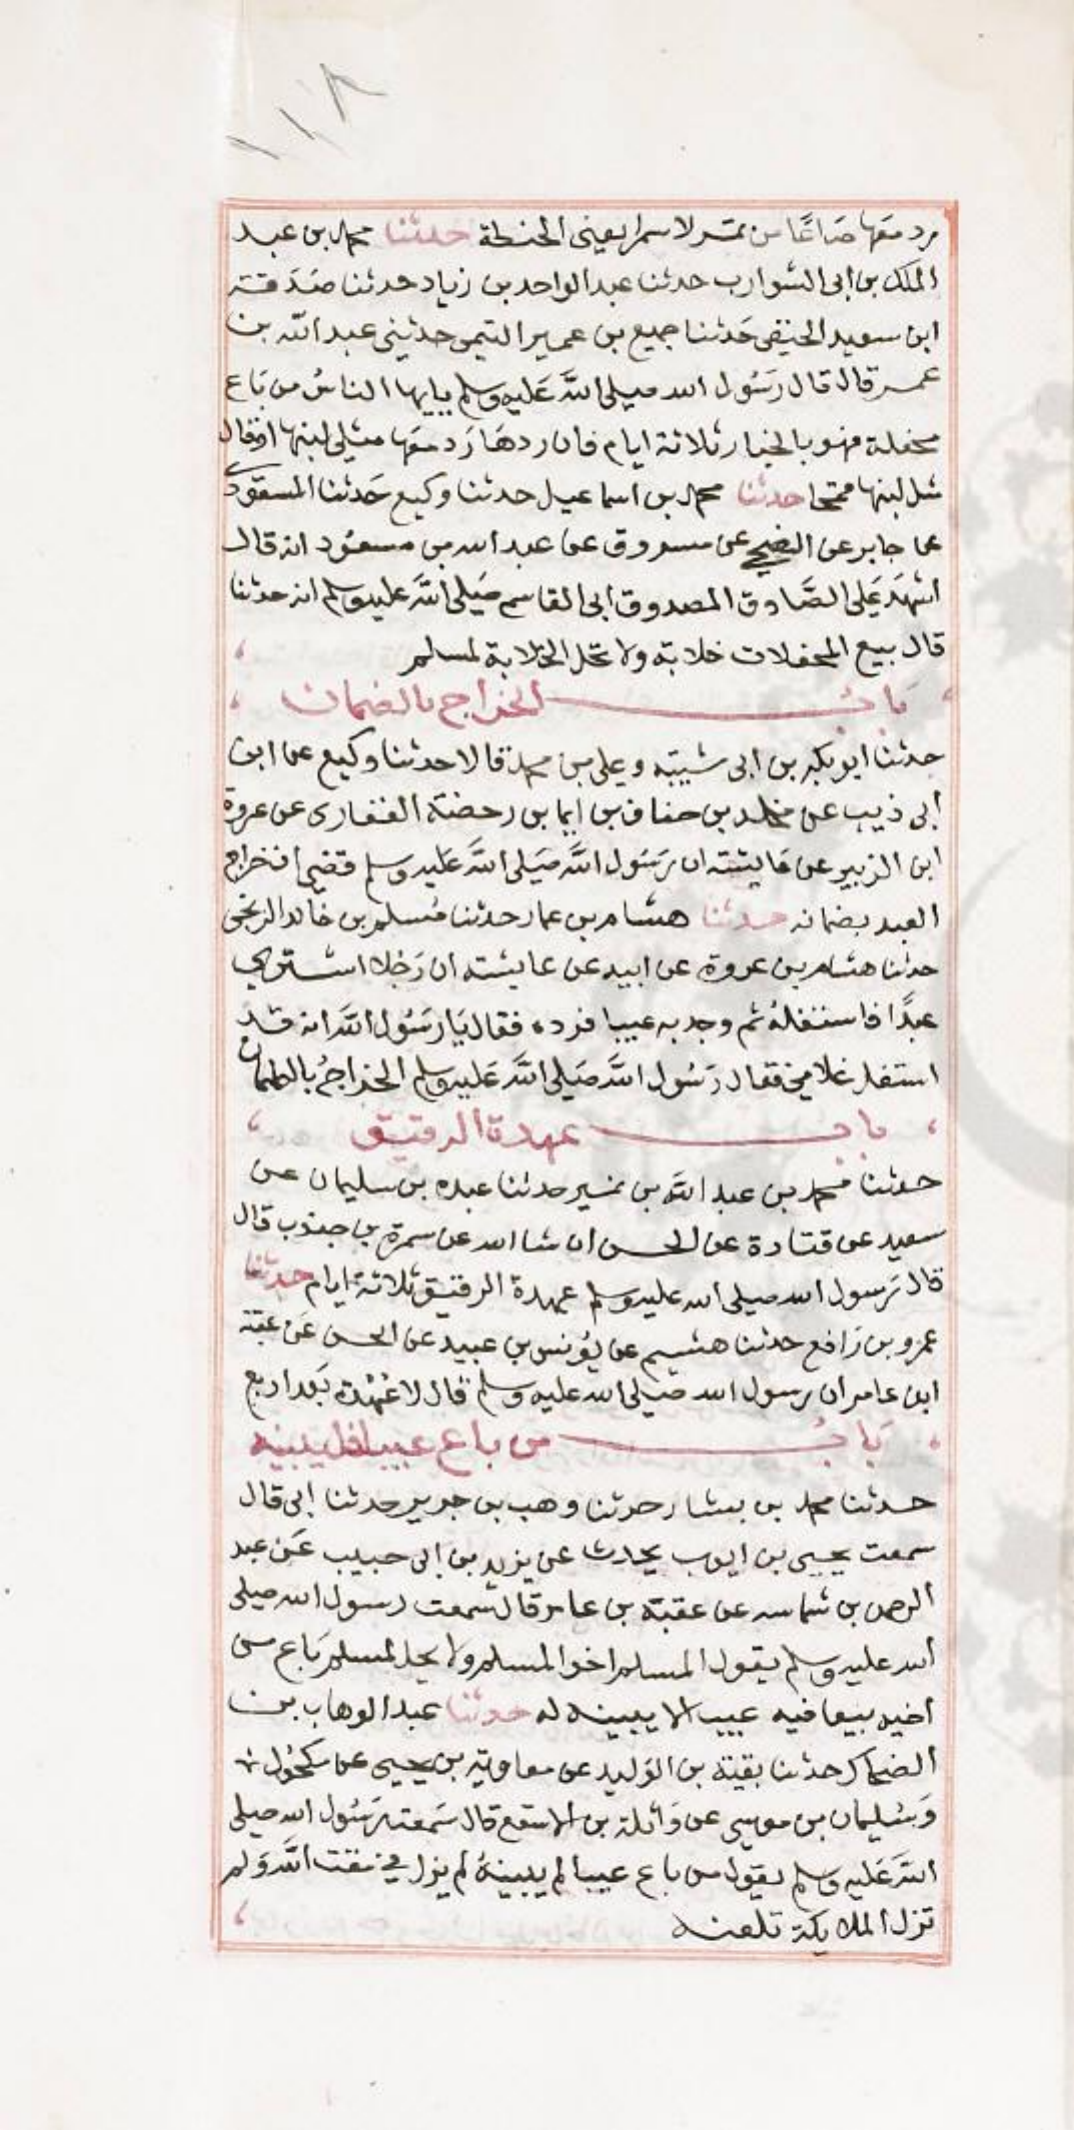 ١١٨
رد معها صَاعًا من تمر لا سمرا يعنى الحنطة حدثنا محمد بن عبد
الملك بن ابى الشوارب حدثنا عبد الواحد بن زياد حدثنا صَدَقة
ابن سعيد الحنفى حَدثنا جميع بن عمير التيمى حدثنى عبد الله بن
عمر قال قال رَسُول الله صلى اللَّه عَليه وسلم يايها الناسُ من بَاع
محفلة فهو بالخيار ثلاثة ايام فان ردهَا رَد معَها مثلى لبنها او قال
مثل لبنها قمحا حدثنا محمد بن اسماعيل حدثنا وكيع حَدثنا المسعودى
عن جابر عن الضحى عن مسروق عن عبد الله بن مسعُود انه قال
اشهَد عَلى الصَّادق المصدوق ابى القاسم صَلى اللَّه عليه وسلم انه حدثنا
قال بيع المحفلات خلابة ولا تحل الخلابة لمسلم
بَابُ الخراج بالضمان
حدثنا ابو بكر بن ابى شيبة وعلى بن محمد قالا حدثنا وكيع عن ابن
ابى ذيب عن مخلد بن خفاف بن ايما بن رحضة الغفارى عن عروة
ابن الزبير عن عَايشة ان رَسَول اللَّه صَلى اللَّه عَليه وسلم قضى ان خراج
العبد بضمانه حدثنا هشام بن عمار حدثنا مُسلم بن خالد الزنجى
حدثنا هشام بن عروة عن ابيه عن عايشة ان رَجلا اشترى
عبدًا فاستغلهُ ثم وجد به عيبا فرده فقال يَا رَسُول اللَّه انه قد
استغل غلامى فقال رَسُول اللَّه صَلى اللَّه عَليه وسلم الخراجُ بالضمان
باب عهدة الرقيق
حدثنا محمد بن عبد اللَّه بن نمير حدثنا عبده بن سليمان عن
سعيد عن قتادة عن الحسن ان شا الله عن سمرة بن جندب قال
قال رَسول الله صلى الله عليه وسلم عهدة الرقيق ثلاثة ايام حدثنا
عمرو بن رَافع حدثنا هشيم عن يُونس بن عبيد عن الحسن عَن عقبة
ابن عامر ان رسول الله صلى الله عليه وسلم قال لا عُهْدة بَعد اربع
بَابُ من باع عيبا فليبينه
حدثنا محمد بن بشار حدثنا وهب بن جرير حدثنا ابى قال
سمعت يحيى بن ايوب يحدث عن يزيد بن ابى حبيب عَن عبد
الرحمن بن شماسه عن عقبة بن عامر قال سمعت رسول الله صلى
الله عليه وسلم يقول المسلم اخوا المسلم ولا يحل لمسلم بَاع من
اخيه بيعا فيه عيب الا يبينه له حدثنا عبد الوهاب بن
الضحاك حدثنا بقية بن الوَليد عن معاوية بن يحيى عن مكحُول
وَسُليمان بن موسى عن وَاثلة بن الاسقع قال سَمعت رَسُول الله صلى
اللَّه عَليه وسلم يقول من باع عيبا لم يبينهُ لم يزل فى مقت اللَّه وَلم
تزل الملايكة تلعنه